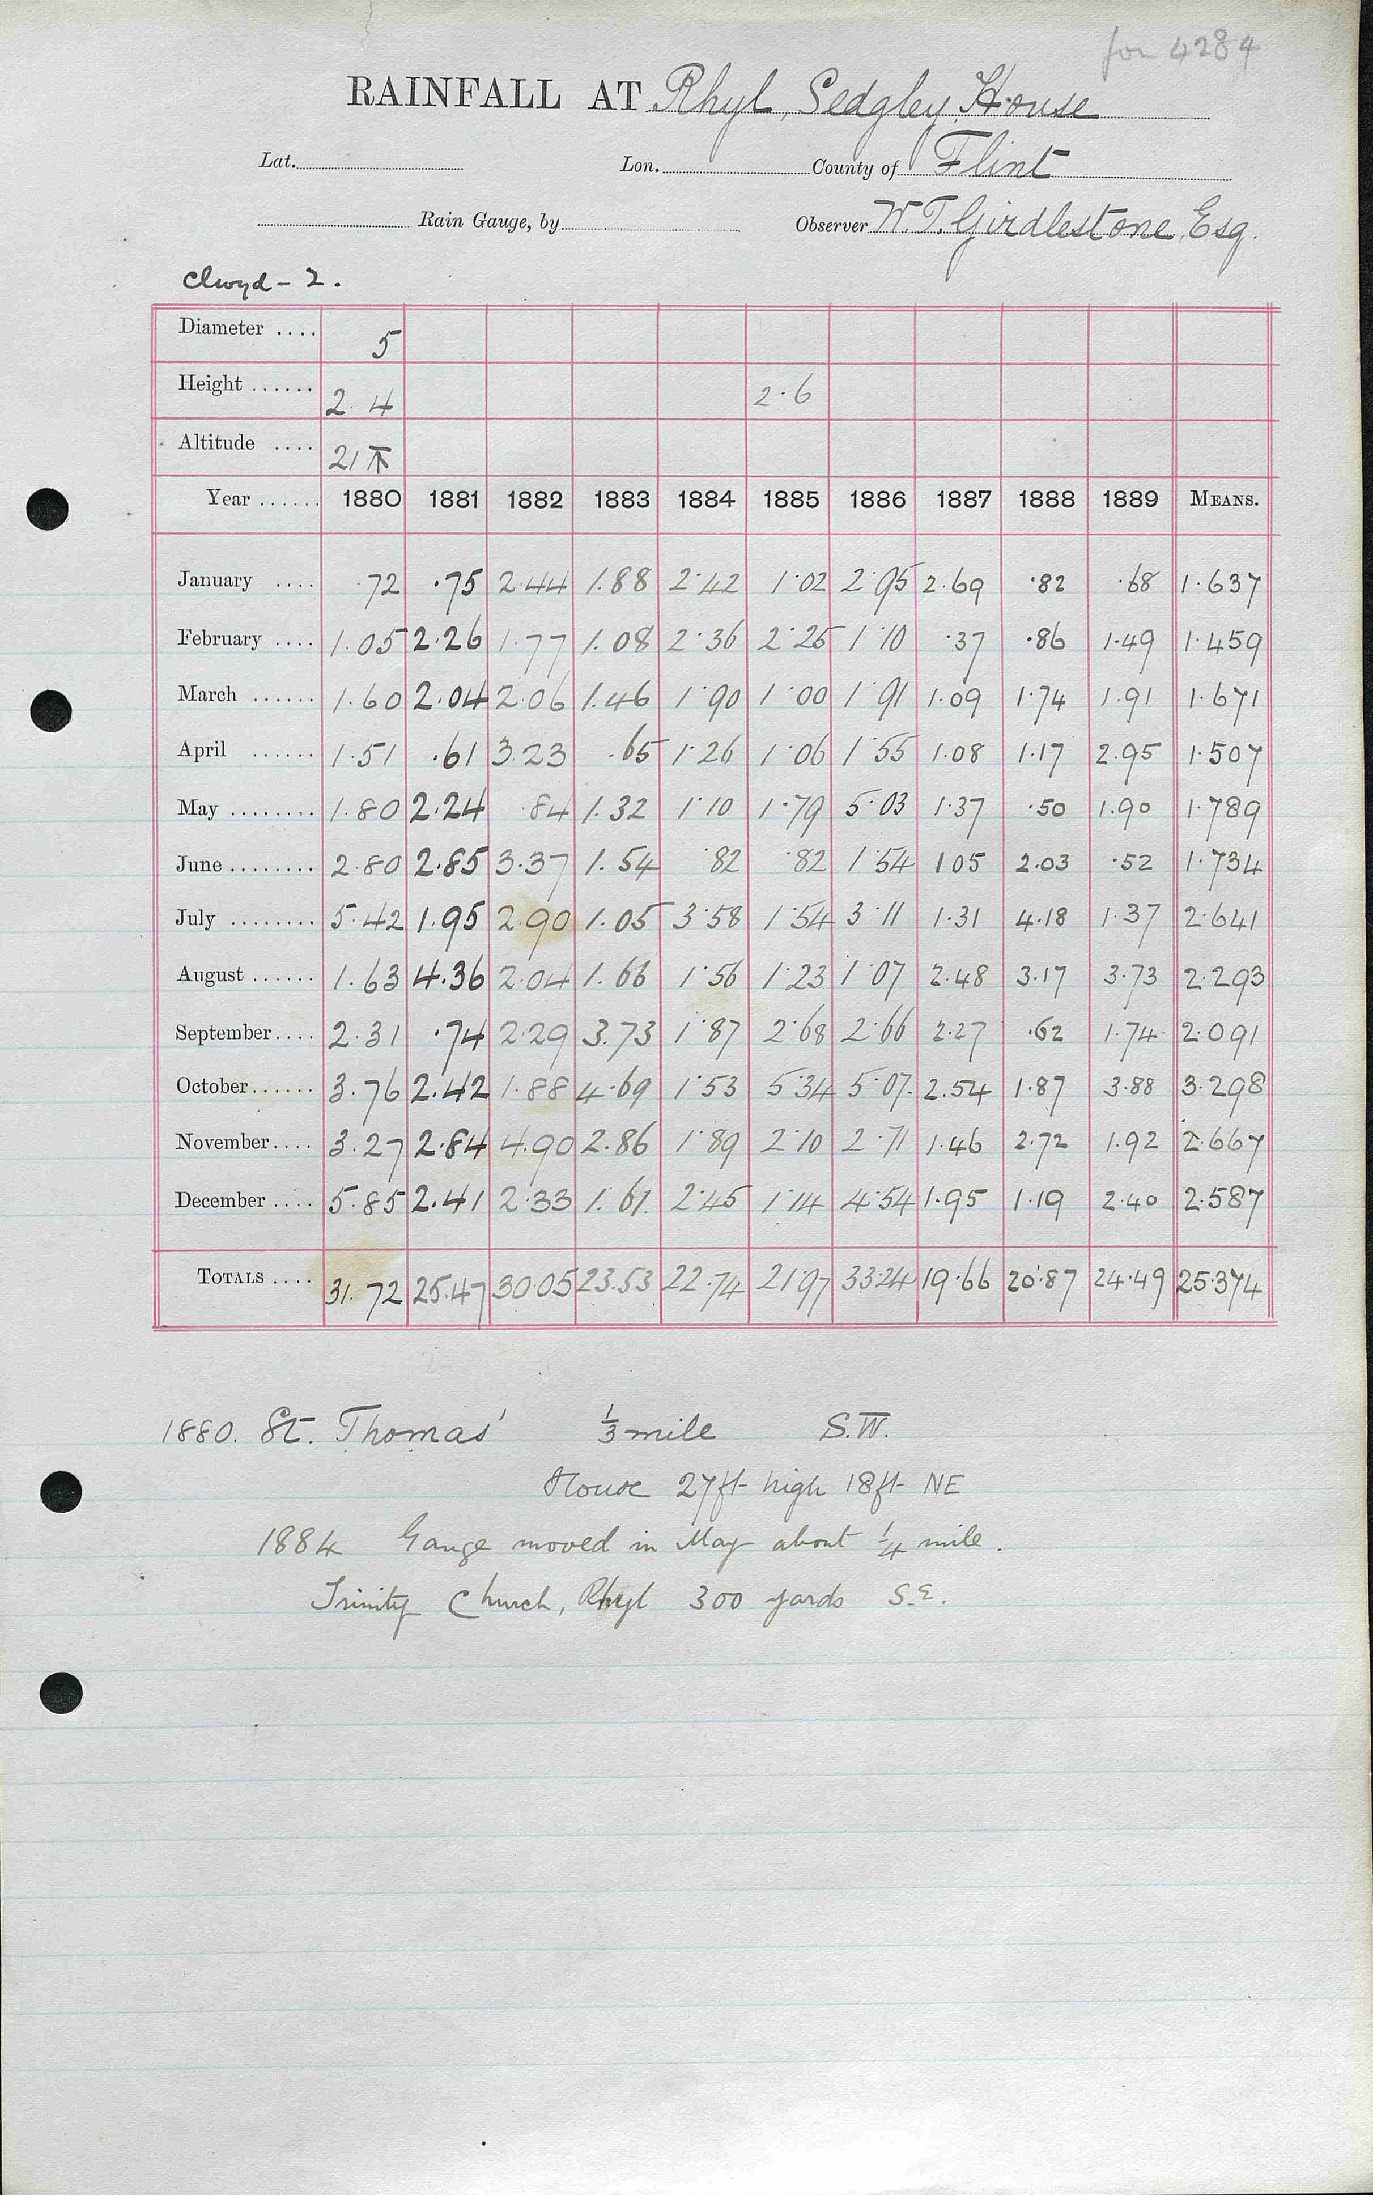 for 4284
RAINFALL AT Rhyl, Sedgley House
Lat. Lon. County of Flint
Rain Gauge, by Observer W. T. Girdlestone, Esq.
Clwyd - 2.
Diameter .... 5
Height ...... 2.4 2.6
Altitude .... 21
Year ...... 1880 1881 1882 1883 1884 1885 1886 1887 1888 1889 MEANS.
January .... .72 .75 2.44 1.88 2.42 1.02 2.95 2.69 .82 .68 1.637
February .... 1.05 2.26 1.77 1.08 2.36 2.25 1.10 .37 .86 1.49 1.459
March ...... 1.60 2.04 2.06 1.46 1.90 1.00 1.91 1.09 1.74 1.91 1.671
April ...... 1.51 .61 3.23 .65 1.26 1.06 1.55 1.08 1.17 2.95 1.507
May ........ 1.80 2.24 .84 1.32 1.10 1.79 5.03 1.37 .50 1.90 1.789
June ........ 2.80 2.85 3.37 1.54 .82 .82 1.54 1 05 2.03 .52 1.734
July ........ 5.42 1.95 2.90 1.05 3.58 1.54 3.11 1.31 4.18 1.37 2.641
August ...... 1.63 4.36 2.04 1.66 1.56 1.23 1.07 2.48 3.17 3.73 2.293
September .... 2.31 .74 2.29 3.73 1.87 2.68 2.66 2.27 .62 1.74 2.091
October ...... 3.76 2.42 1.88 4.69 1.53 5.34 5.07 2.54 1.87 3.88 3.298
November .... 3.27 2.84 4.90 2.86 1.89 2.10 2.71 1.46 2.72 1.92 2.667
December .... 5.85 2.41 2.33 1.61 2.45 1.14 4.54 1.95 1.19 2.40 2.587
TOTALS .... 31.72 25.47 30.05 23.53 22.74 21.97 33.24 19.66 20.87 24.49 25.374
1880. St. Thomas' 1/3 mile S.W.
House 27ft high 18ft NE
1884 Gauge moved in May about 1/4 mile.
Trinity Church, Rhyl 300 yards S.E.